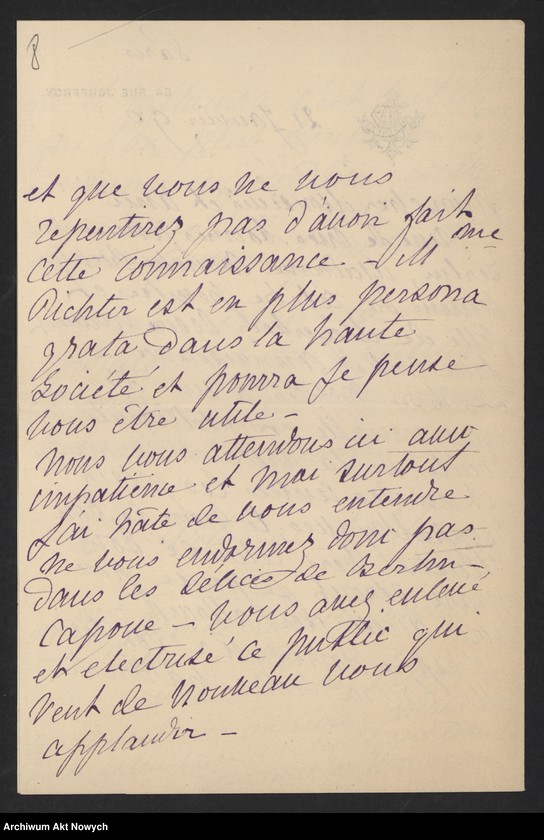 8
et que vous ne vous
repentirez pas d'avoir fait
cette connaissance - Mme
Richter est en plus persona
grata dans la haute
Société et pourra je pense
vous être utile -
nous vous attendons ici avec
impatience et moi surtout
j'ai hâte de vous entendre
ne vous endormez donc pas
dans les délices de Berlin-
Capoue - vous avez enlevé
et electrisé ce public qui
vent de nouveau vous
applaudir -
Archiwum Akt Nowych